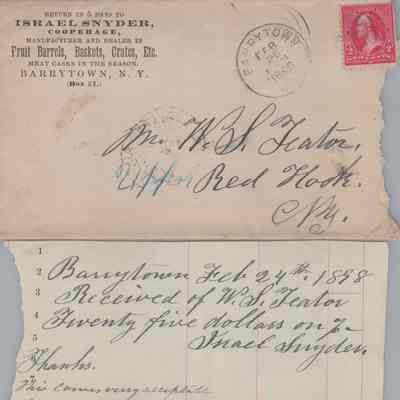 RETURN IN 5 DAYS TO
ISRAEL SNYDER,
COOPERAGE,
MANUFACTURER AND DEALER IN
Fruit Barrels, Baskets, Crates, Etc.
MEAT CASKS IN THE SEASON.
BARRYTOWN, N. Y.
(Box 21.)
BARRYTOWN
FEB
1898
Mr. W. S. Teator.
Upper Red Hook.
N.y.
1
2
3
4
5
Barrytown Feb 24th. 1898
Received of W. S. Teator
Twenty five dollars on
Israel Snyder.
Thanks.
This comes very